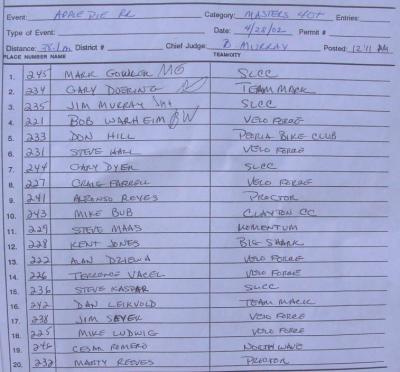 Event: APPLE PIE RR Category: MASTERS 40+ Entries:
Type of Event: Date: 4/28/02 Permit #
Distance: 38.1m District # Chief Judge: B MURRAY Posted: 12:11 AM
PLACE NUMBER NAME TEAM/CITY
1. 245 MARK MG SLCC
2. 234 GARY DOERING TEAM MACK
3. 235 JIM MURRAY SLCC
4. 221 BOB WARHEIM BW VELO FORCE
5. 233 DON HILL PEORIA BIKE CLUB
6. 231 STEVE HALL VELO FORCE
7. 244 GARY DYER SLCC
8. 227 CRAIG FARRELL VELO FORCE
9. 241 ALFONSO REYES PROCTOR
10. 243 MIKE BUB CLAYTON CC
11. 229 STEVE MAAS MOMENTUM
12. 228 KENT JONES BIG SHARK
13. 222 ALAN DZIEWA VELO FORCE
14. 226 TERRENCE VACEL VELO FORCE
15. 236 STEVE KASPAR SLCC
16. 242 DAN LEIKVOLD TEAM MACK
17. 238 JIM SAYER VELO FORCE
18. 225 MIKE LUDWIG VELO FORCE
19. 246 CESAR ROMERO NORTHWAVE
20. 232 MARTY REEVES PROCTOR